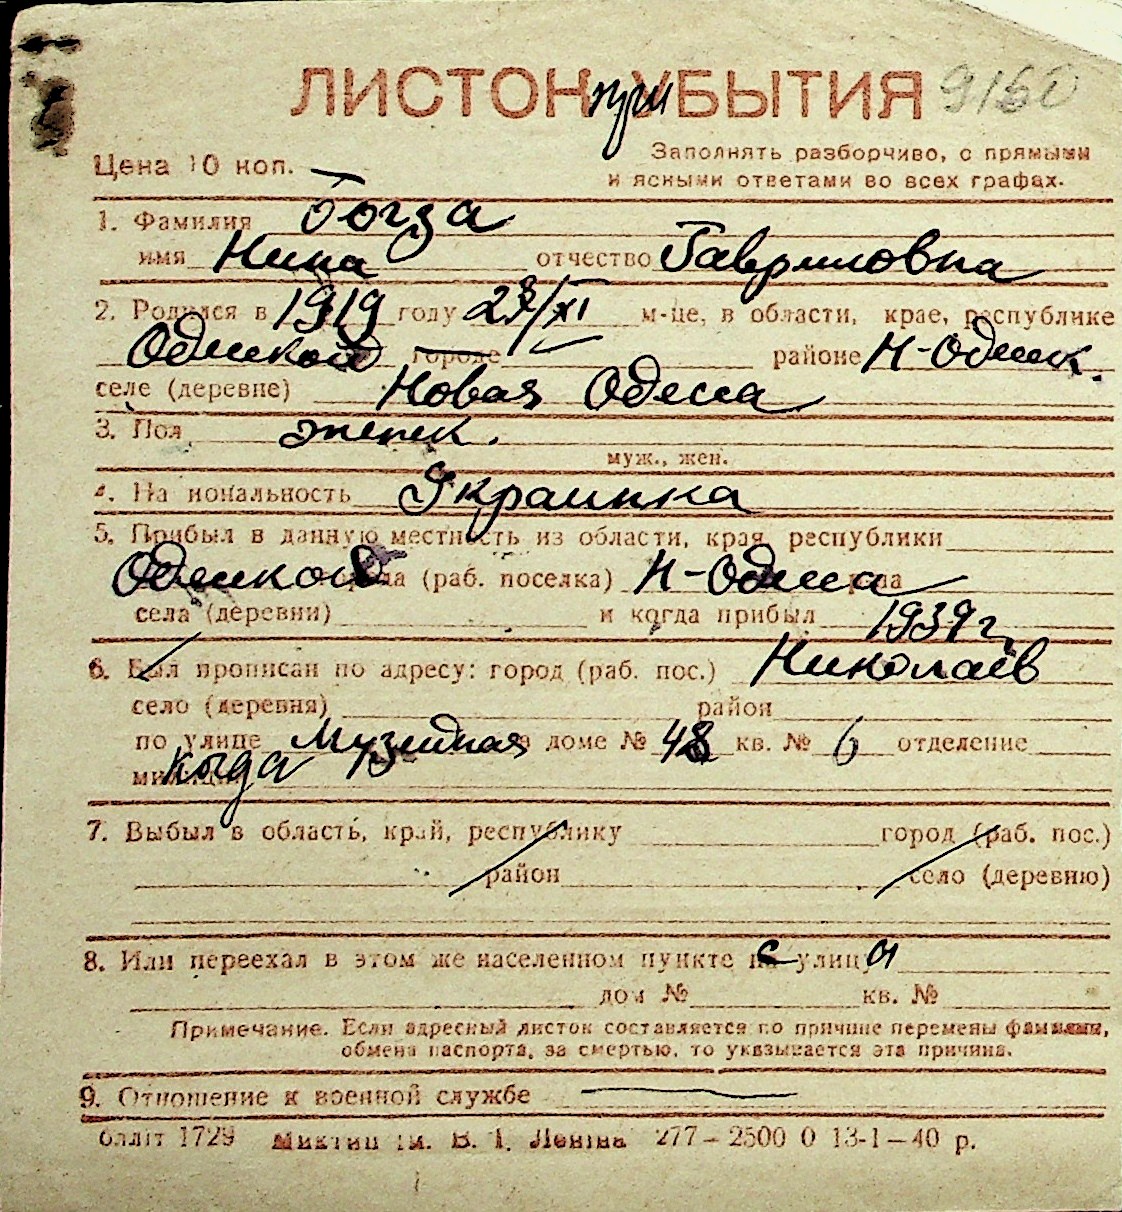 ЛИСТОК при УБЫТИЯ 9160
Цена 10 коп. Заполнять разборчиво, с прямыми
и ясными ответами во всех графах.
1. Фамилия Гогза
имя Нина отчество Гавриловна
2. Родился в 1919 году 23/XI м-це, в области, крае, республике
Одесской городе районе Н-Одесск.
селе (деревне) Новая Одесса
3. Пол женск.
муж., жен.
4. Национальность Украинка
5. Прибыл в данную местность из области, края, республики
Одесской города (раб. поселка) Н-Одесса р-на
села (деревни) и когда прибыл 1939 г.
6. Был прописан по адресу: город (раб. пос.) Николаев
село (деревня) район
по улице Музейная в доме № 48 кв. № 6 отделение
милиции когда
7. Выбыл в область, край, республику город (раб. пос.)
район село (деревню)
8. Или переехал в этом же населенном пункте с улицы
дом № кв. №
Примечание. Если адресный листок составляется по причине перемены фамилии,
обмена паспорта, за смертью, то указывается эта причина.
9. Отношение к военной службе
блліт 1729 ім. В. І. Леніна 277–2500 0 13-1–40 р.